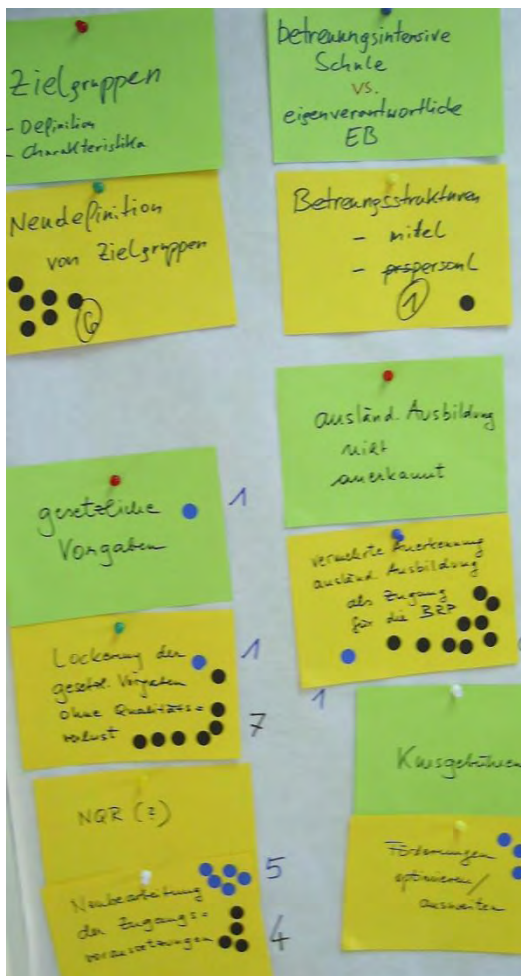 Zielgruppen
- Definition
- Charakteristika
Neudefinition
von Zielgruppen
6
gesetzliche
Vorgaben
1
Lockerung der
gesetzl. Vorgaben
ohne Qualitäts=
verlust
1
7
NQR (?)
Neubearbeitung
der Zugangs=
voraussetzungen
5
4
betreuungsintensive
Schule
vs.
eigenverantwortliche
EB
Betreungsstrukturen
- mitel
- personl
1
ausländ. Ausbildung
nicht
anerkannt
vermehrte Anerkennung
ausländ. Ausbildung
als Zugang
für die BRP
1
Kursgebühren
Förderungen
optimieren/
ausweiten